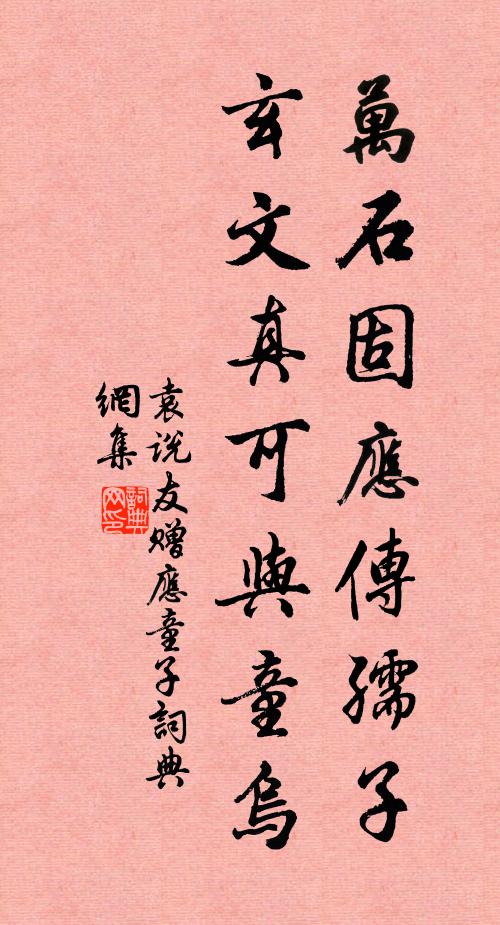 萬石固應傳孺子
玄文真可與童烏
袁說友贈應童子詞典
網集
詞典
网印